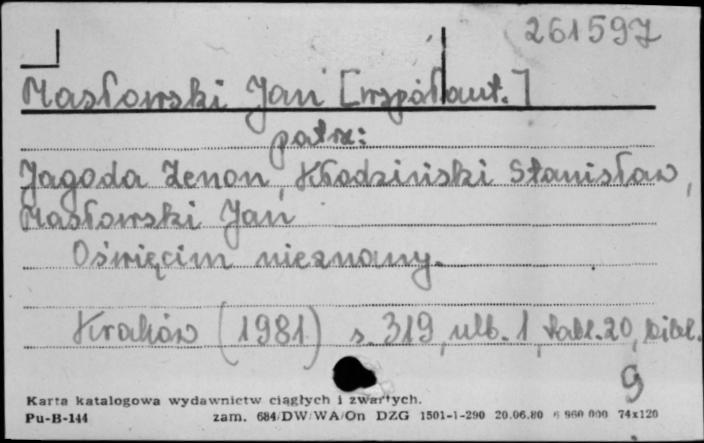 261597
Masłowski Jan [współaut.]
patrz:
Jagoda Zenon, Kłodziński Stanisław,
Masłowski Jan
Oświęcim nieznany.
Kraków (1981) s. 319, nlb. 1, tabl. 20, bibl.
9
Karta katalogowa wydawnictw ciągłych i zwartych.
Pu-B-144 zam. 684/DW/WA/On DZG 1501-1-290 20.06.80 6 960 000 74x120